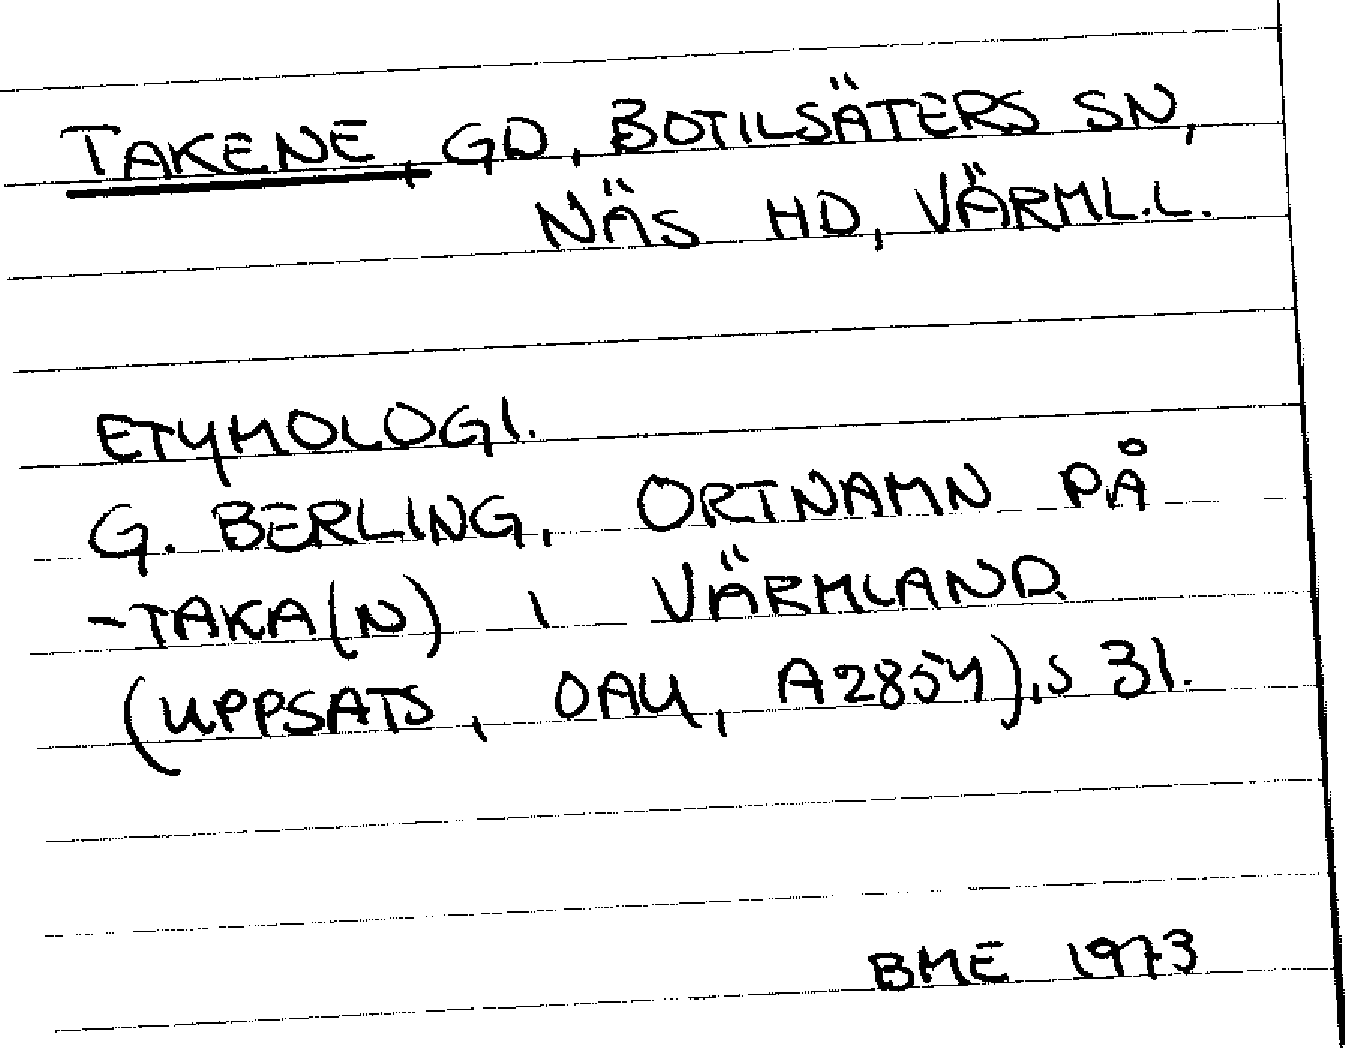 TAKENE, GD, BOTILSÄTERS SN,
NÄS HD, VÄRML.L.
ETYMOLOGI.
G. BERLING, ORTNAMN PÅ
-TAKA(N) I VÄRMLAND
(UPPSATS, OAU, A2854), S 31.
BME 1973